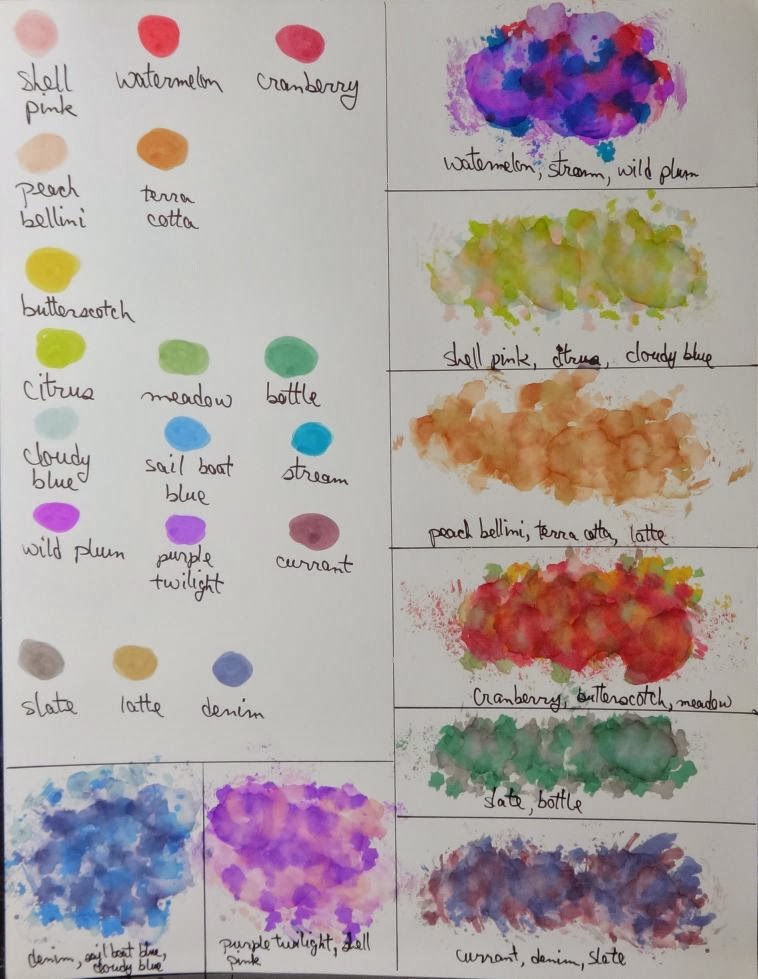 shell
pink
watermelon
cranberry
peach
bellini
terra
cotta
butterscotch
citrus
meadow
bottle
cloudy
blue
sail boat
blue
stream
wild plum
purple
twilight
currant
slate
latte
denim
watermelon, stream, wild plum
shell pink, citrus, cloudy blue
peach bellini, terra cotta, latte
cranberry, butterscotch, meadow
slate, bottle
denim, sail boat blue,
cloudy blue
purple twilight, shell
pink
currant, denim, slate